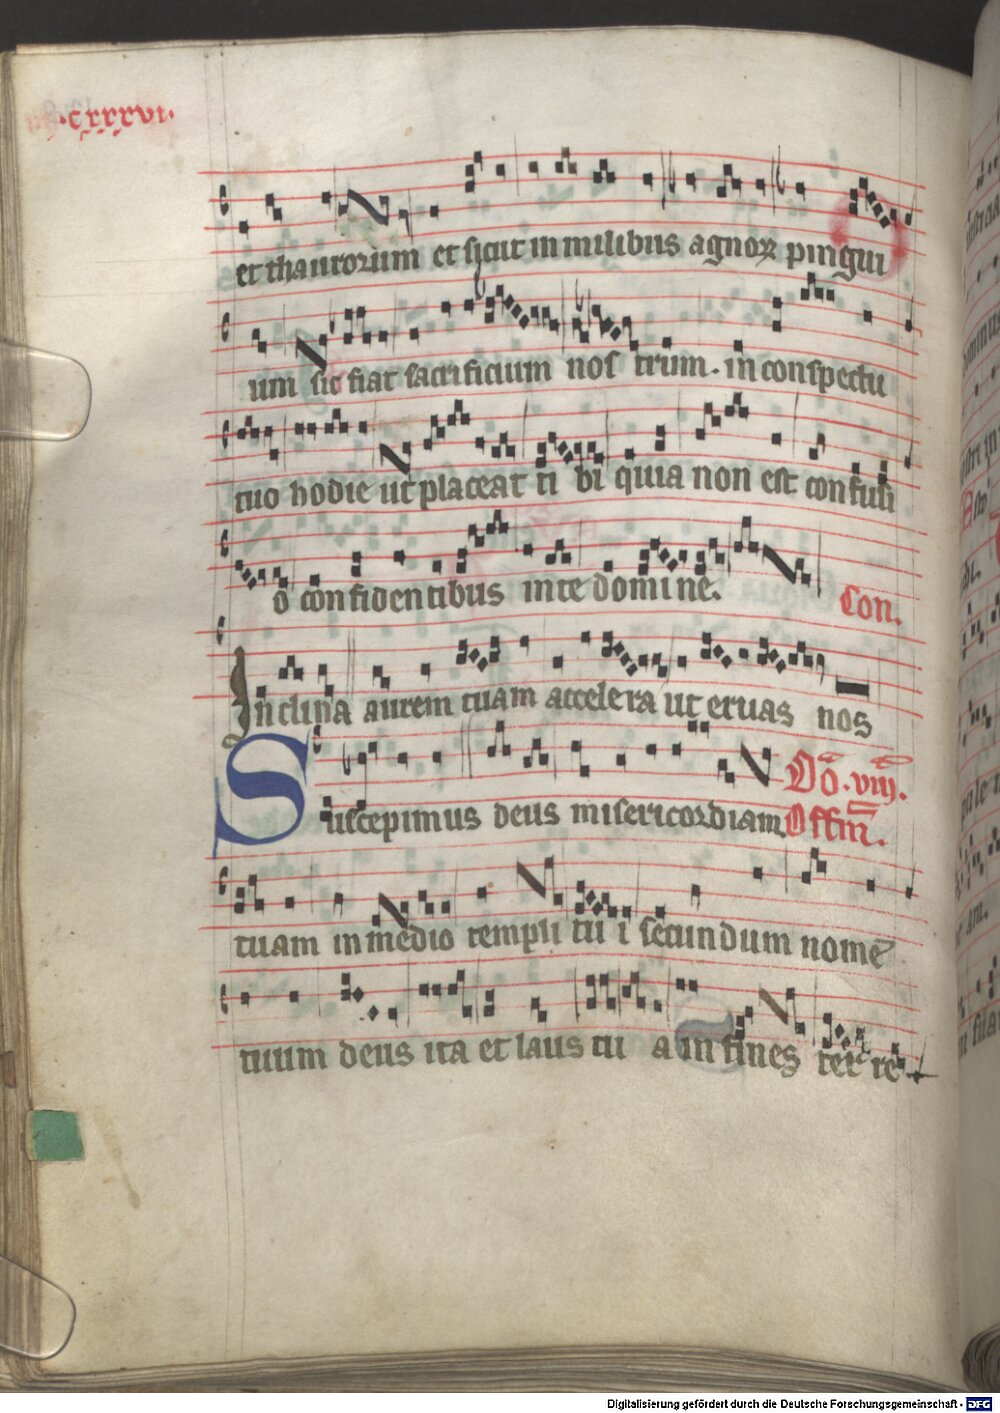 .cxxxvi.
et thaurorum et sicut in milibus agnorꝝ pingui
um sic fiat sacrificium nostrum. in conspectu
tuo hodie ut placeat tibi quia non est confusi
o confidentibus in te domine.
Con.
Inclina aurem tuam accelera ut eruas nos
Dō. viij.
Suscepimus deus misericordiam
Offm̄.
tuam in medio templi tui secundum nomē
tuum deus ita et laus tua in fines terre
Digitalisierung gefördert durch die Deutsche Forschungsgemeinschaft - DFG